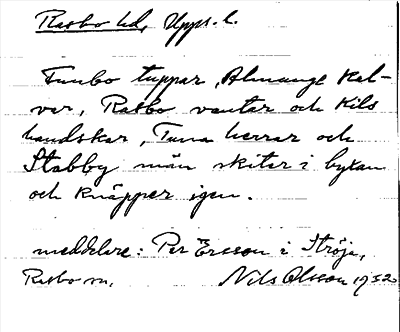 Rasbo hd, Upps. l.
Funbo tuppar, Almunge kal-
var, Rasbo vantar och Kils
handskar, Tuna herrar och
Stabby män skiter i byxan
och knäpper igen.
meddelare: Per Ersson i Ströja,
Rasbo sn. Nils Olsson 1952